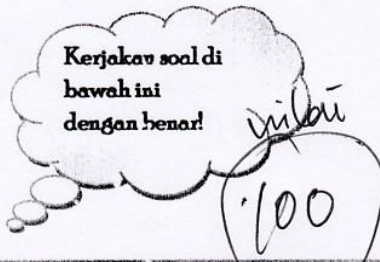 Kerjakan soal di
bawah ini
dengan benar!
nilai
100